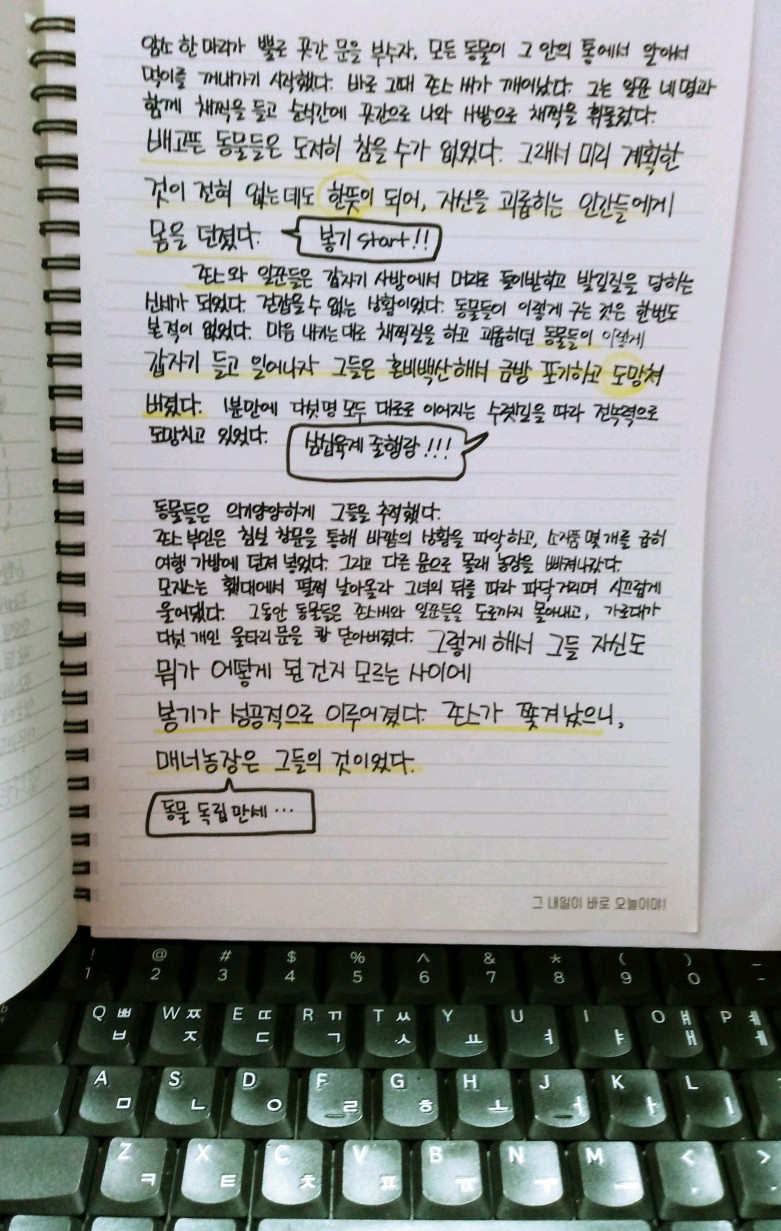 암소 한 마리가 뿔로 곳간 문을 부수자, 모든 동물이 그 안의 통에서 알아서
먹이를 꺼내가기 시작했다. 바로 그때 존스 씨가 깨어났다. 그는 일꾼 네 명과
함께 채찍을 들고 순식간에 곳간으로 나와 사방으로 채찍을 휘둘렀다.
배고픈 동물들은 도저히 참을 수가 없었다. 그래서 미리 계획한
것이 전혀 없는데도 한뜻이 되어, 자신을 괴롭히는 인간들에게
몸을 던졌다.
봉기 start!!
존스와 일꾼들은 갑자기 사방에서 머리로 들이받히고 발길질을 당하는
신세가 되었다. 걷잡을 수 없는 상황이었다. 동물들이 이렇게 구는 것은 한번도
본 적이 없었다. 마음 내키는 대로 채찍질을 하고 괴롭히던 동물들이 이렇게
갑자기 들고 일어나자 그들은 혼비백산해서 금방 포기하고 도망쳐
버렸다. 1분만에 다섯 명 모두 대로로 이어지는 수렛길을 따라 전속력으로
도망치고 있었다.
삼십육계 줄행랑!!!
동물들은 의기양양하게 그들을 추적했다.
존스 부인은 침실 창문을 통해 바깥의 상황을 파악하고, 소지품 몇 개를 급히
여행 가방에 던져 넣었다. 그리고 다른 문으로 몰래 농장을 빠져나갔다.
모지스는 횃대에서 펄쩍 날아올라 그녀의 뒤를 따라 파닥거리며 시끄럽게
울어댔다. 그동안 동물들은 존스씨와 일꾼들을 도로까지 몰아내고, 가로대가
다섯 개인 울타리 문을 쾅 닫아버렸다. 그렇게 해서 그들 자신도
뭐가 어떻게 된 건지 모르는 사이에
봉기가 성공적으로 이루어졌다. 존스가 쫓겨났으니,
매너농장은 그들의 것이었다.
동물 독립 만세…
그 내일이 바로 오늘이야!
! @ # $ % ^ & * ( ) _
1 2 3 4 5 6 7 8 9 0 -
Q ㅃ W ㅉ E ㄸ R ㄲ T ㅆ Y U I O ㅒ P ㅖ
ㅂ ㅈ ㄷ ㄱ ㅅ ㅛ ㅕ ㅑ ㅐ ㅔ
A S D F G H J K L
ㅁ ㄴ ㅇ ㄹ ㅎ ㅗ ㅓ ㅏ ㅣ
Z X C V B N M < >
ㅋ ㅌ ㅊ ㅍ ㅠ ㅜ ㅡ